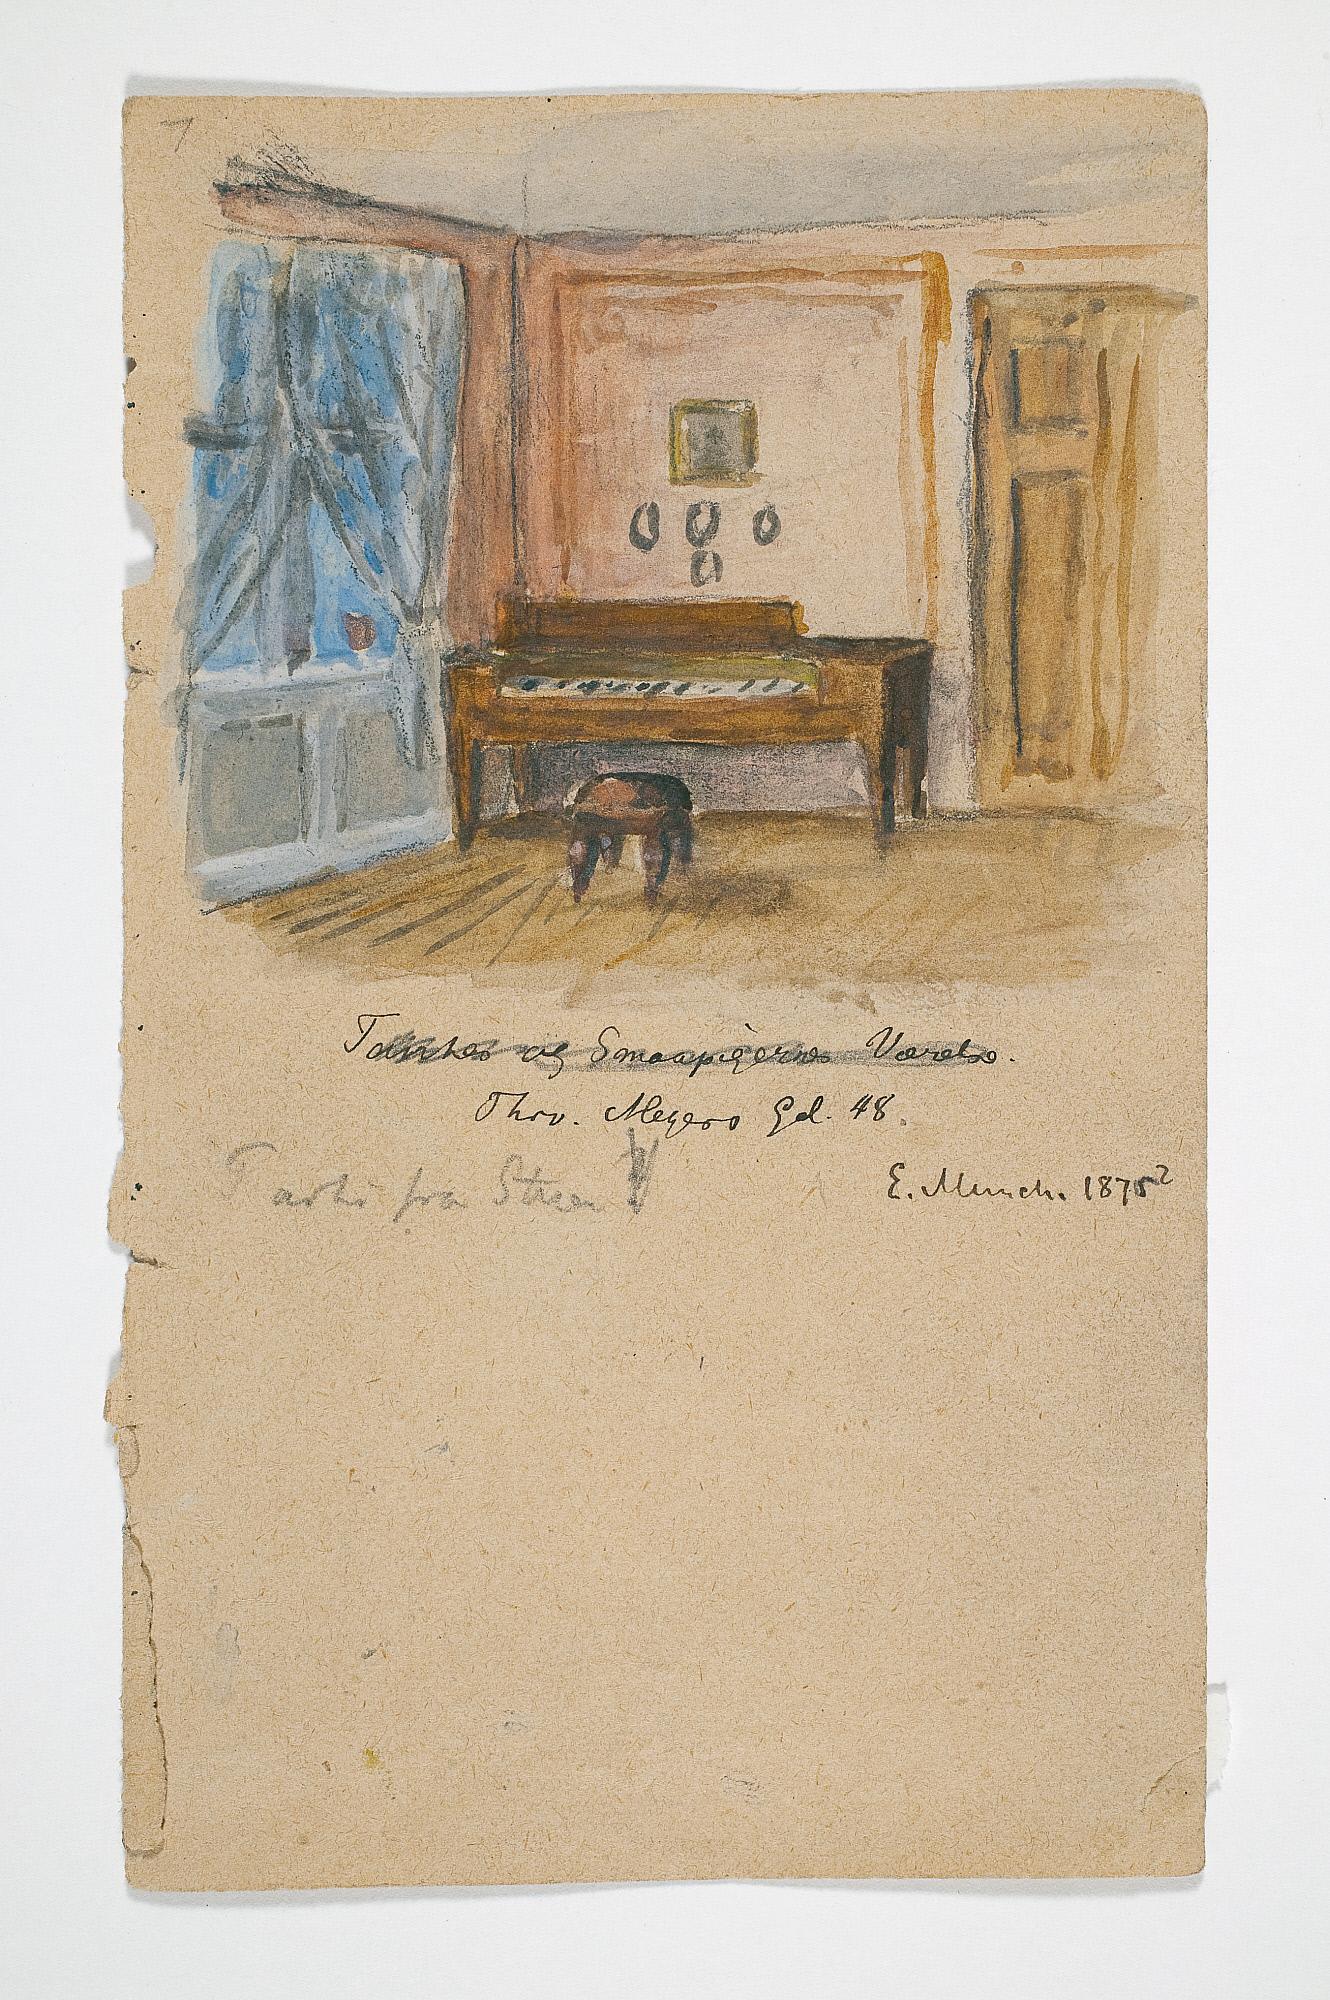 7
Tantes og Smaapigernes Værelse.
Thrv. Meyers Gd. 48.
Parti fra
E. Munch. 1875 2